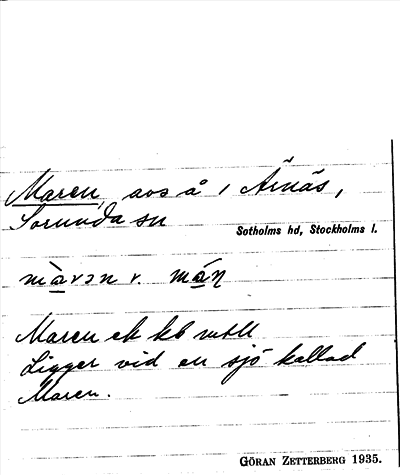 Maren, avs å i Ärnäs,
Sorunda sn
Sotholms hd, Stockholms l.
màrən v. mán
Maren ek kb
Ligger vid en sjö kallad
Maren.
GÖRAN ZETTERBERG 1935.